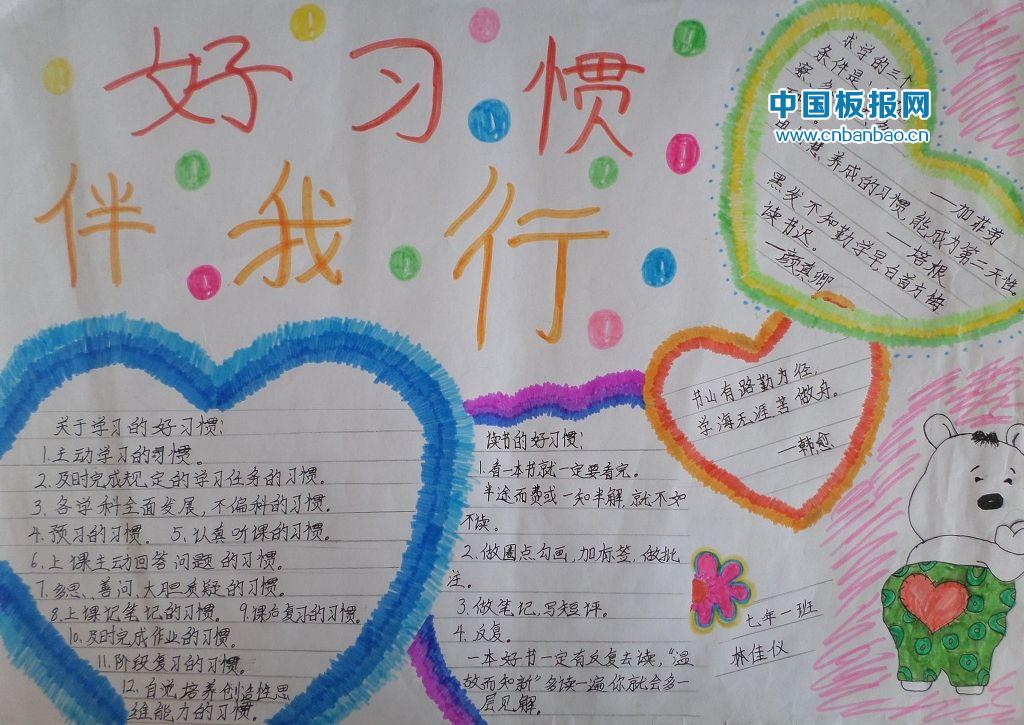 好习惯
伴我行
求学的三个
条件是：
察、多
中国板报网
www.cnbanbao.cn
养成的习惯，能成为第二天性。
——加菲劳
——培根
黑发不知勤学早，白首方悔
读书迟。
——颜真卿
书山有路勤为径，
学海无涯苦做舟。
——韩愈
关于学习的好习惯：
1.主动学习的习惯。
2.及时完成规定的学习任务的习惯。
3.各学科全面发展，不偏科的习惯。
4.预习的习惯。 5.认真听课的习惯。
6.上课主动回答问题的习惯。
7.多思、善问、大胆质疑的习惯。
8.上课记笔记的习惯。 9.课后复习的习惯。
10.及时完成作业的习惯。
11.阶段复习的习惯。
12.自觉培养创造性思
维能力的习惯。
读书的好习惯：
1.看一本书就一定要看完。
半途而费或一知半解，就不如
不读。
2.做圈点勾画，加标签，做批
注。
3.做笔记，写短评。
4.反复。
一本好书一定有反复去读，“温
故而知新”多读一遍你就会多一
层见解。
七年一班
林佳仪